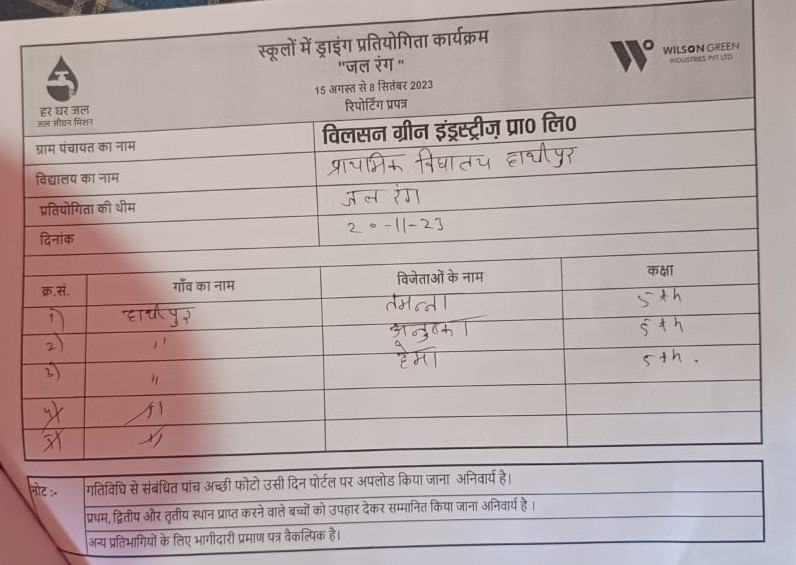 स्कूलों में ड्राइंग प्रतियोगिता कार्यक्रम
"जल रंग "
15 अगस्त से 8 सितंबर 2023
रिपोर्टिंग प्रपत्र
हर घर जल
जल जीवन मिशन
WILSON GREEN
INDUSTRIES PVT LTD
ग्राम पंचायत का नाम विलसन ग्रीन इंड्रस्ट्रीज़ प्रा० लि०
विद्यालय का नाम प्राथमिक विद्यालय हाथीपुर
प्रतियोगिता की थीम जल रंग
दिनांक 20-11-23
क्र.सं. गाँव का नाम विजेताओं के नाम कक्षा
1) हाथीपुर तमन्ना 5th
2) " अनुष्का 5th
3) " हेमा 5th .
4) "
5) "
नोट :- गतिविधि से संबंधित पांच अच्छी फोटो उसी दिन पोर्टल पर अपलोड किया जाना अनिवार्य है।
प्रथम, द्वितीय और तृतीय स्थान प्राप्त करने वाले बच्चों को उपहार देकर सम्मानित किया जाना अनिवार्य है ।
अन्य प्रतिभागियों के लिए भागीदारी प्रमाण पत्र वैकल्पिक है।